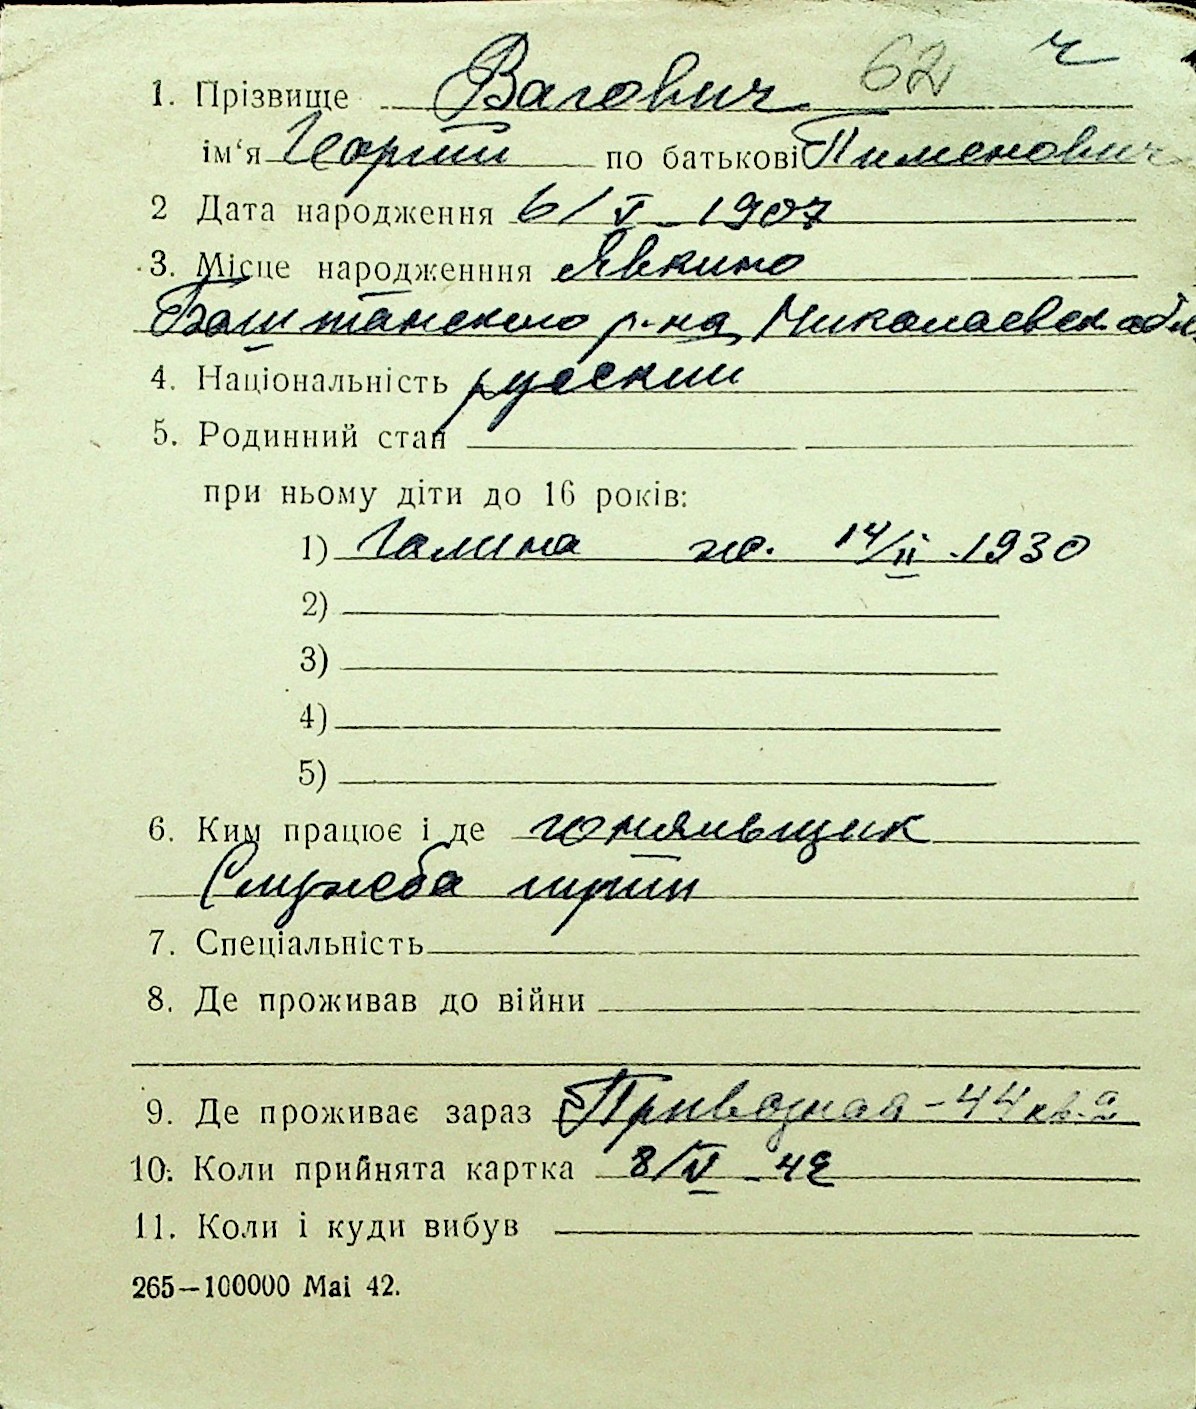 62 ч
1. Прізвище Вагович
ім‘я Георгий по батькові Пименович
2 Дата народження 6/V - 1907
3. Місце народженння Явкино
Баштанского р-на, Николаевск. обл.
4. Національність русский
5. Родинний стан
при ньому діти до 16 років:
1) Галина ж. 14/II - 1930
2)
3)
4)
5)
6. Ким працює і де
Служба пути
7. Спеціальність
8. Де проживав до війни
9. Де проживає зараз Привозная - 44 кв. 2
10. Коли прийнята картка - 42
11. Коли і куди вибув
265—100000 Mai 42.